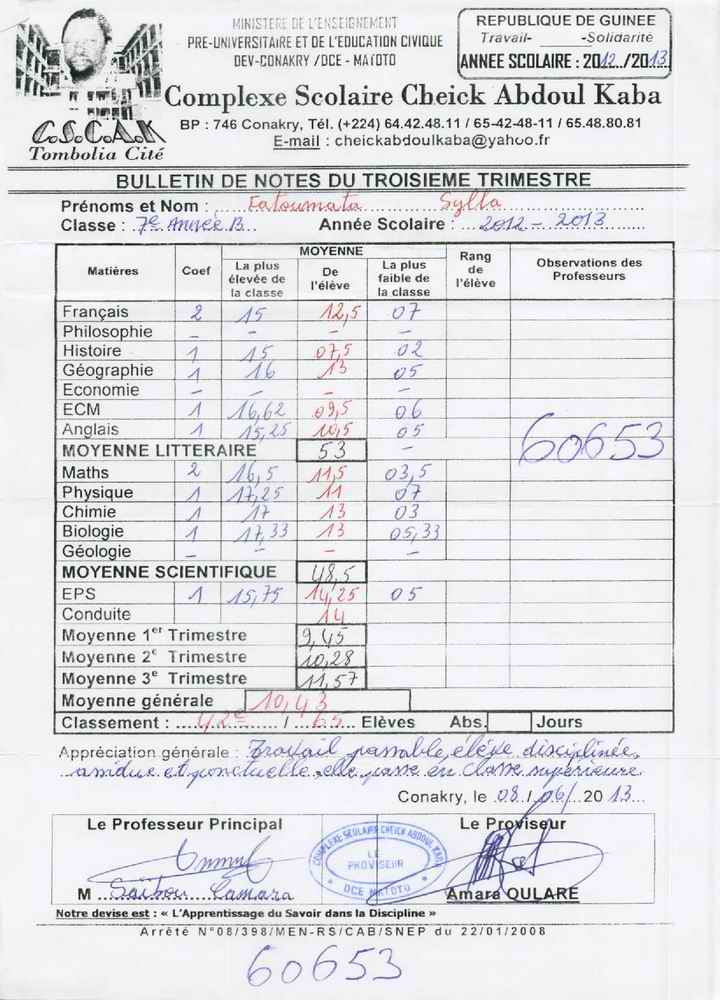 MINISTERE DE L'ENSEIGNEMENT
PRE-UNIVERSITAIRE ET DE L'EDUCATION CIVIQUE
DEV-CONAKRY /DCE - MATOTO
REPUBLIQUE DE GUINEE
Travail- -Solidarité
ANNEE SCOLAIRE : 2012../2013
C.S.C.A.K
Tombolia Cité
Complexe Scolaire Cheick Abdoul Kaba
BP : 746 Conakry, Tél. (+224) 64.42.48.11 / 65-42-48-11 / 65.48.80.81
E-mail : cheickabdoulkaba@yahoo.fr
BULLETIN DE NOTES DU TROISIEME TRIMESTRE
Prénoms et Nom : Fatoumata Sylla
Classe : 7e Année B Année Scolaire : 2012 - 2013
Matières Coef MOYENNE Rang de l'élève Observations des Professeurs
La plus élevée de la classe De l'élève La plus faible de la classe
Français 2 15 12,5 07
Philosophie - - - -
Histoire 1 15 07,5 02
Géographie 1 16 13 05
Economie - - - -
ECM 1 16,62 09,5 06
Anglais 1 15,25 10,5 05
MOYENNE LITTERAIRE 53 -
60653
Maths 2 16,5 11,5 03,5
Physique 1 17,25 11 07
Chimie 1 17 13 03
Biologie 1 17,33 13 05,33
Géologie - - - -
MOYENNE SCIENTIFIQUE 48,5
EPS 1 15,75 14,25 05
Conduite 14
Moyenne 1er Trimestre 9,45
Moyenne 2e Trimestre 10,28
Moyenne 3e Trimestre 11,57
Moyenne générale 10,43
Classement : 42e / 65 Elèves Abs. Jours
Appréciation générale : Travail passable, élève disciplinée,
assidue et ponctuelle. elle passe en classe supérieure
Conakry, le 08/06/2013
Le Professeur Principal Le Proviseur
COMPLEXE SCOLAIRE CHEICK ABDOUL KABA
LE
PROVISEUR
DCE MATOTO
M Saïbou Camara Amara OULARE
Notre devise est : « L'Apprentissage du Savoir dans la Discipline »
Arrêté N°08/398/MEN-RS/CAB/SNEP du 22/01/2008
60653